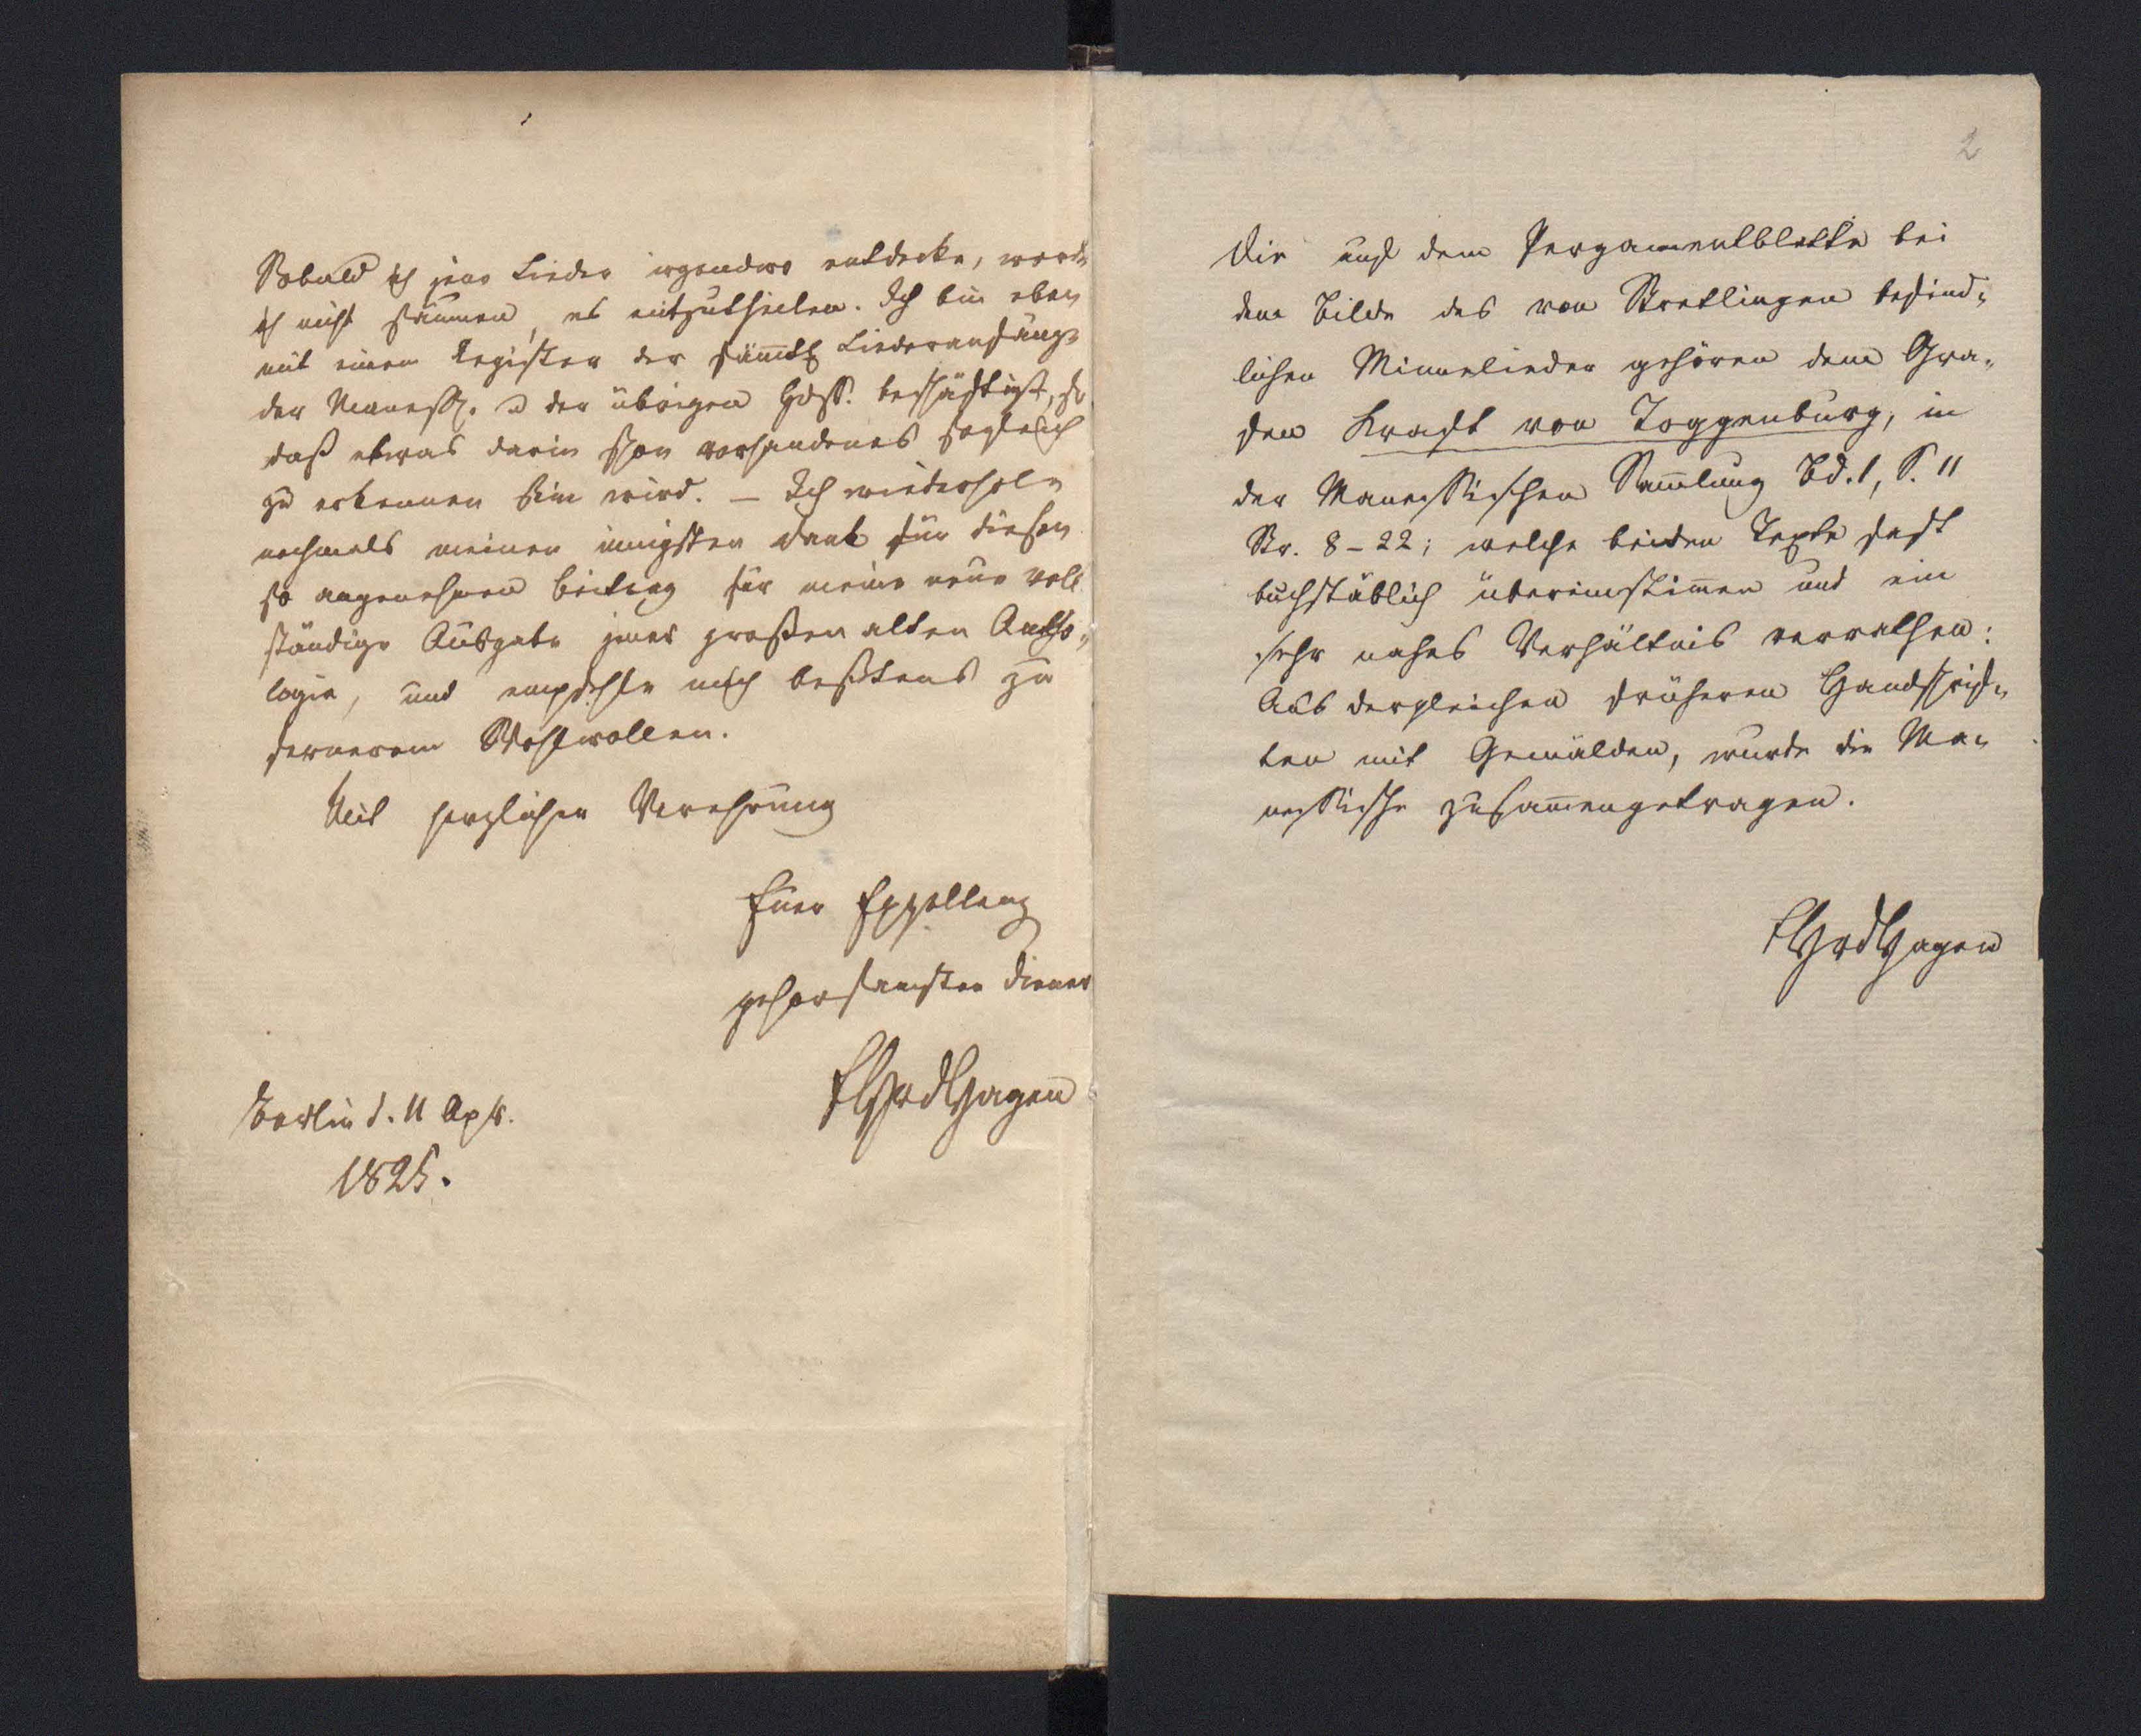 Sobald ich jene Lieder irgendwo entdecke, werde
ich nicht säumen, es mitzutheilen. Ich bin eben
mit einem Register der sämtl. Liederanfänge
der Maness. u der übrigen Hdss. beschäftigt, so
daß etwas darin schon vorhandenes sogleich
zu erkennen sein wird. – Ich wiederhole
nochmals meinen innigsten Dank für diesen
so angenehmen Beitrag für meine neue voll
ständige Ausgabe jener großen alten Antho-
logie, und empfehle mich beßtens zu
fernerem Wohlwollen.
Mit herzlicher Verehrung
Euer Exzellenz
gehorsamster Diener
FHvdHagen
Berlin d. 11 Apr.
1825.
2
Die auf dem Pergamentblatte bei
dem Bilde des von Stretlingen befind-
lichen Minnelieder gehören dem Gra-
fen Kraft von Toggenburg, in
der Manessischen Samlung Bd. 1, S. 11
Str. 8-22; welche beiden Texte fast
buchstäblich übereinstimen und ein
sehr nahes Verhältnis verrathen:
Aus dergleichen früheren Handschrif-
ten mit Gemälden, wurde die Ma-
nessische zusamengetragen.
FHvdHagen